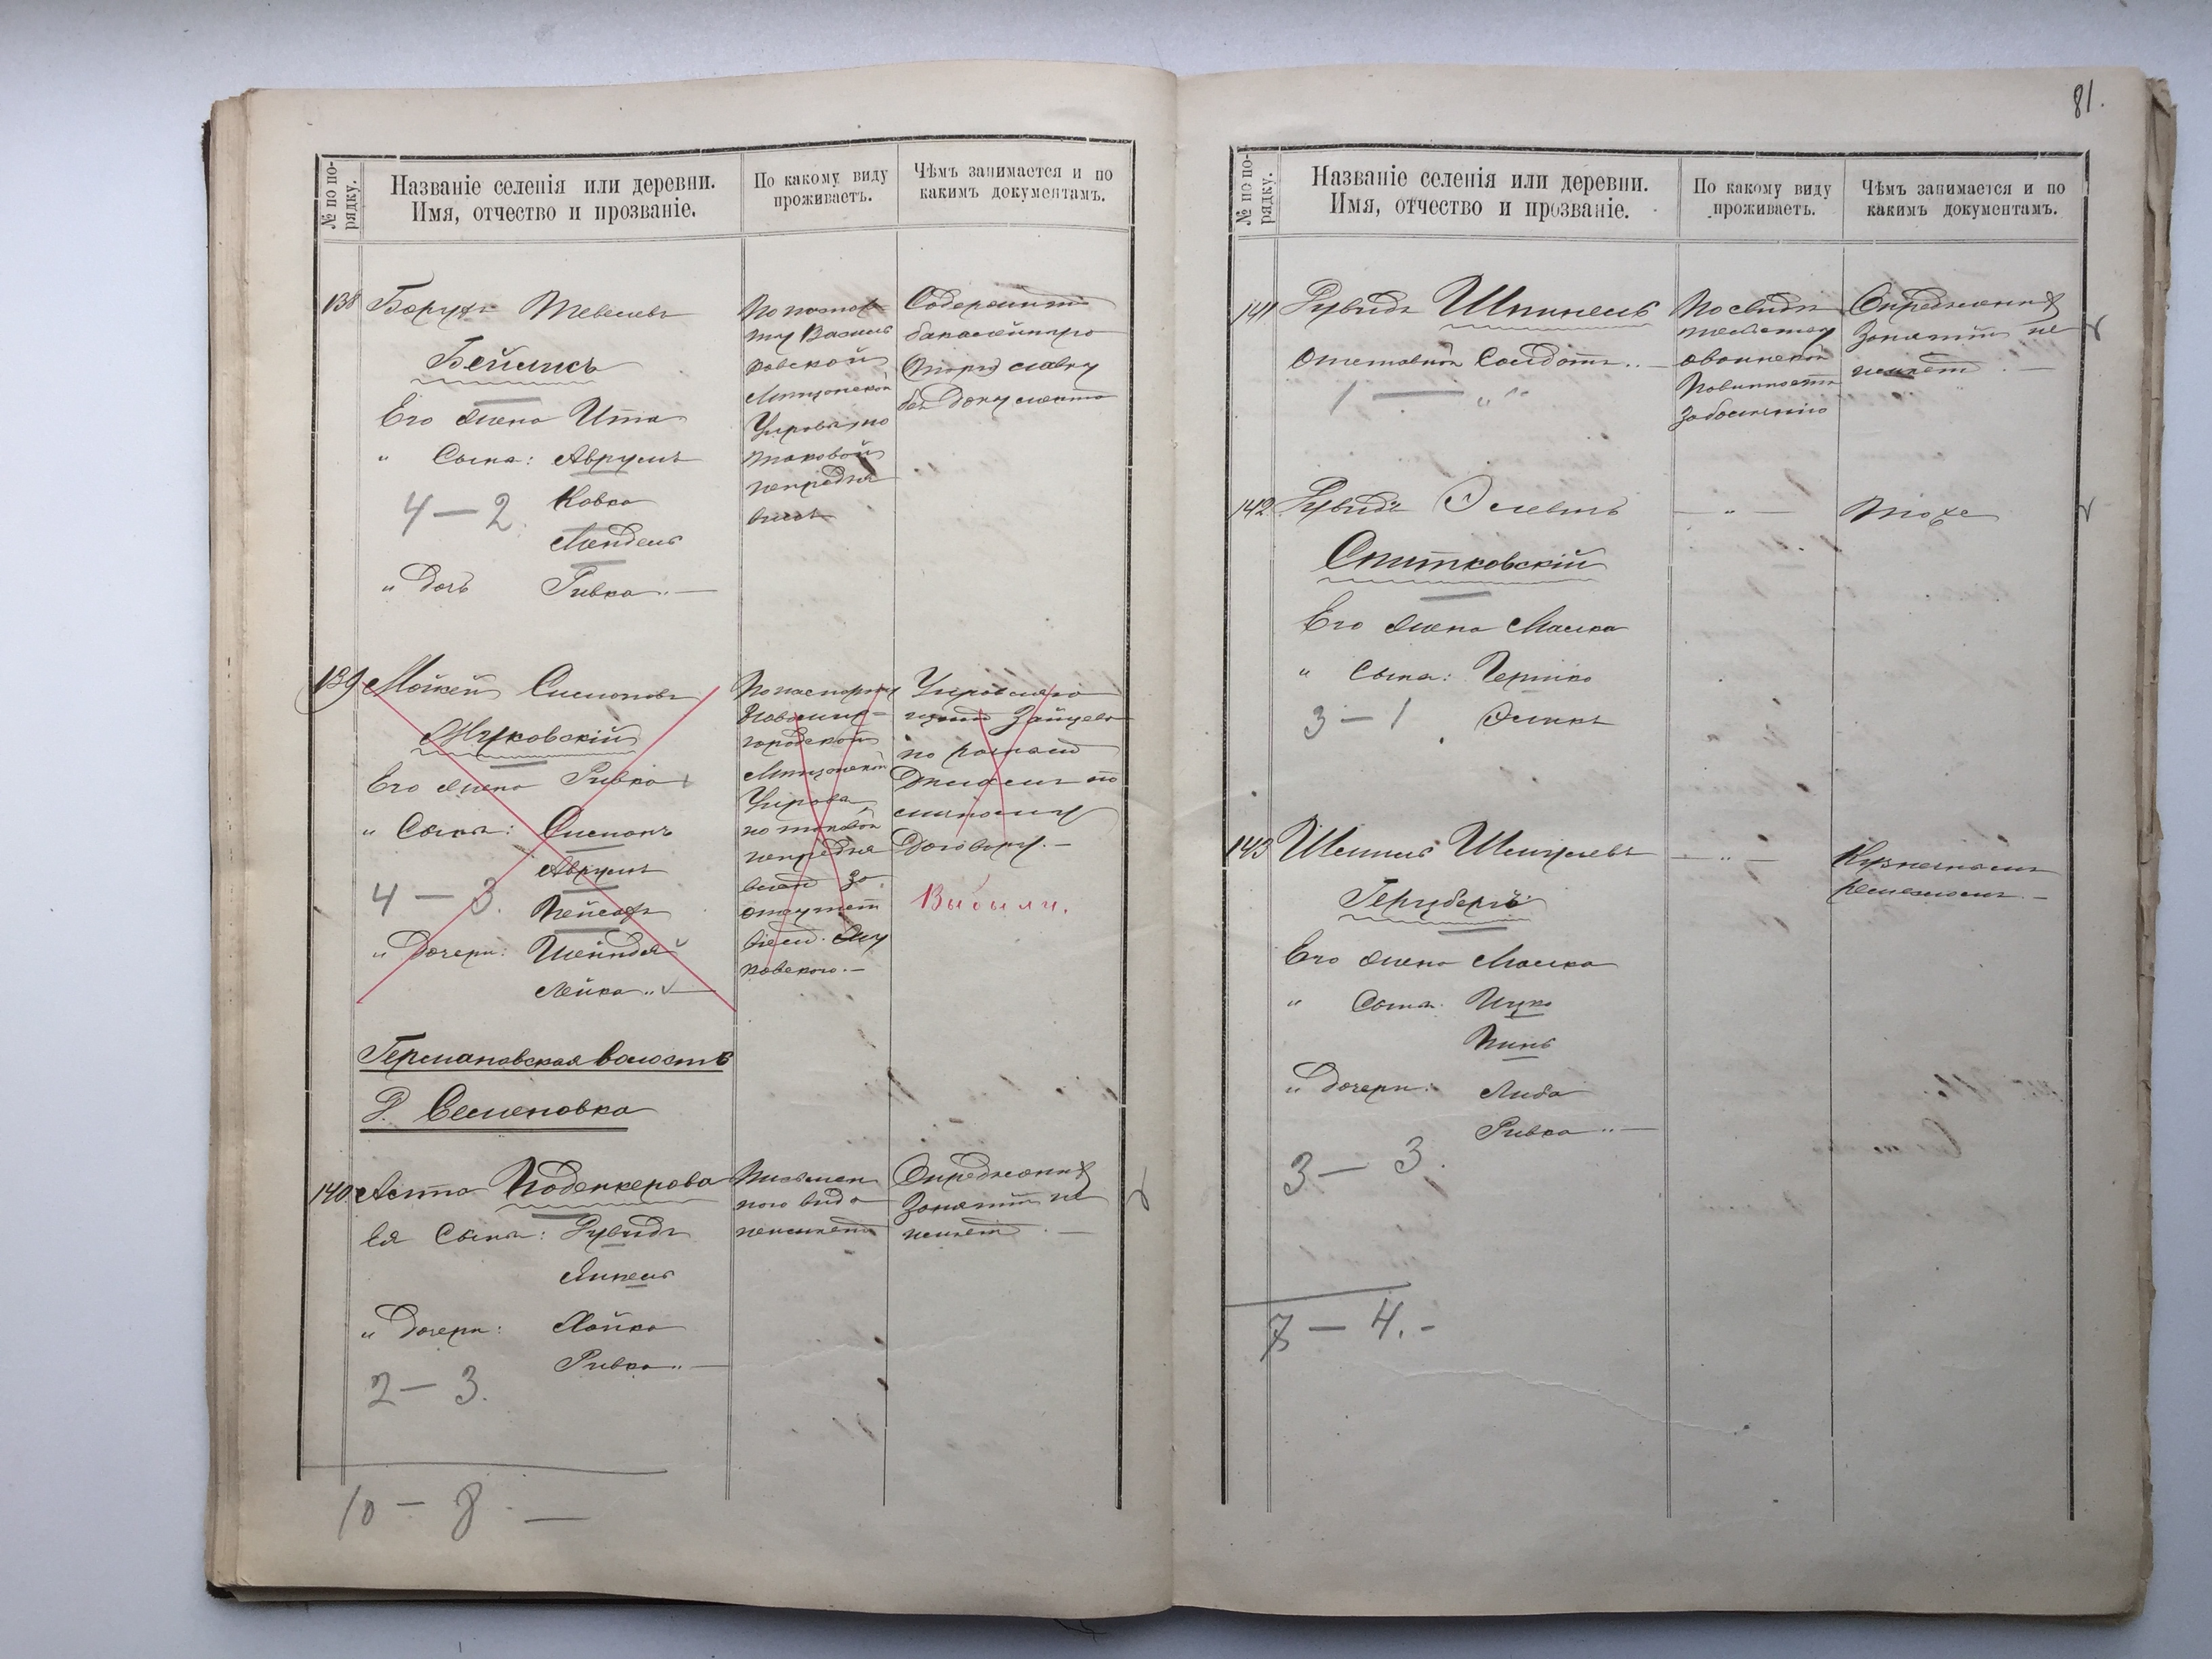 № по по-
рядку.
Названіе селенія или деревни.
Имя, отчество и прозваніе.
По какому виду
проживаетъ.
Чѣмъ занимается и по
какимъ документамъ.
138
Борухъ Тевелевъ
Бейлисъ
Его жена Ита
" Сыны: Аврумъ
Ковка
Мендель
4 — 2
" Дочь Ривка
По
ту Василь
ковской
Мѣщанской
Управы но
таковой
непредъя
вилъ
Содержитъ
бакалейную
лавку
без документа
139
Мошей Симоновъ
Жуковскій
Его жена Ривка
" Сыны: Симонъ
Аврумъ
Пейсахъ
4 — 3.
" Дочери: Шейндля
Лейка
По паспорту
городской
Мѣщанской
Управы,
но таковой
непредъя
вилъ за
отсутст
віем. Жу
ковскаго. —
У
Зайцева
по
дѣламъ по
договору. —
Выбыли.
Германовская волость
Д. Семеновка
140
Подеркерова
Ея Сыны: Рувидъ
Янкель
" Дочери: Хайка
Ривка
2 — 3.
Письмен
ного вида
неимѣетъ
Опредѣленныхъ
Занятій не
имѣетъ. —
10 — 8. —
81.
№ по по-
рядку.
Названіе селенія или деревни.
Имя, отчество и прозваніе.
По какому виду
проживаетъ.
Чѣмъ занимается и по
какимъ документамъ.
141
Рувидъ Шпинель
Отставной Солдатъ
1 — " "
По свидѣ
тельству
о воинской
повинности
Опредѣленныхъ
Занятій не
имѣетъ. —
142
Рувидъ
Спитковскій
Его жена Малка
" Сыны: Гершко
3 — 1
— " —
Тоже
143
Шмиль Шмулевъ
Герцбергъ
Его жена Малка
" Сыны: Ицко
Пинь
" Дочери: Либа
Ривка
3 — 3.
— " —
Кузнечнымъ
ремесломъ. —
7 — 4. —